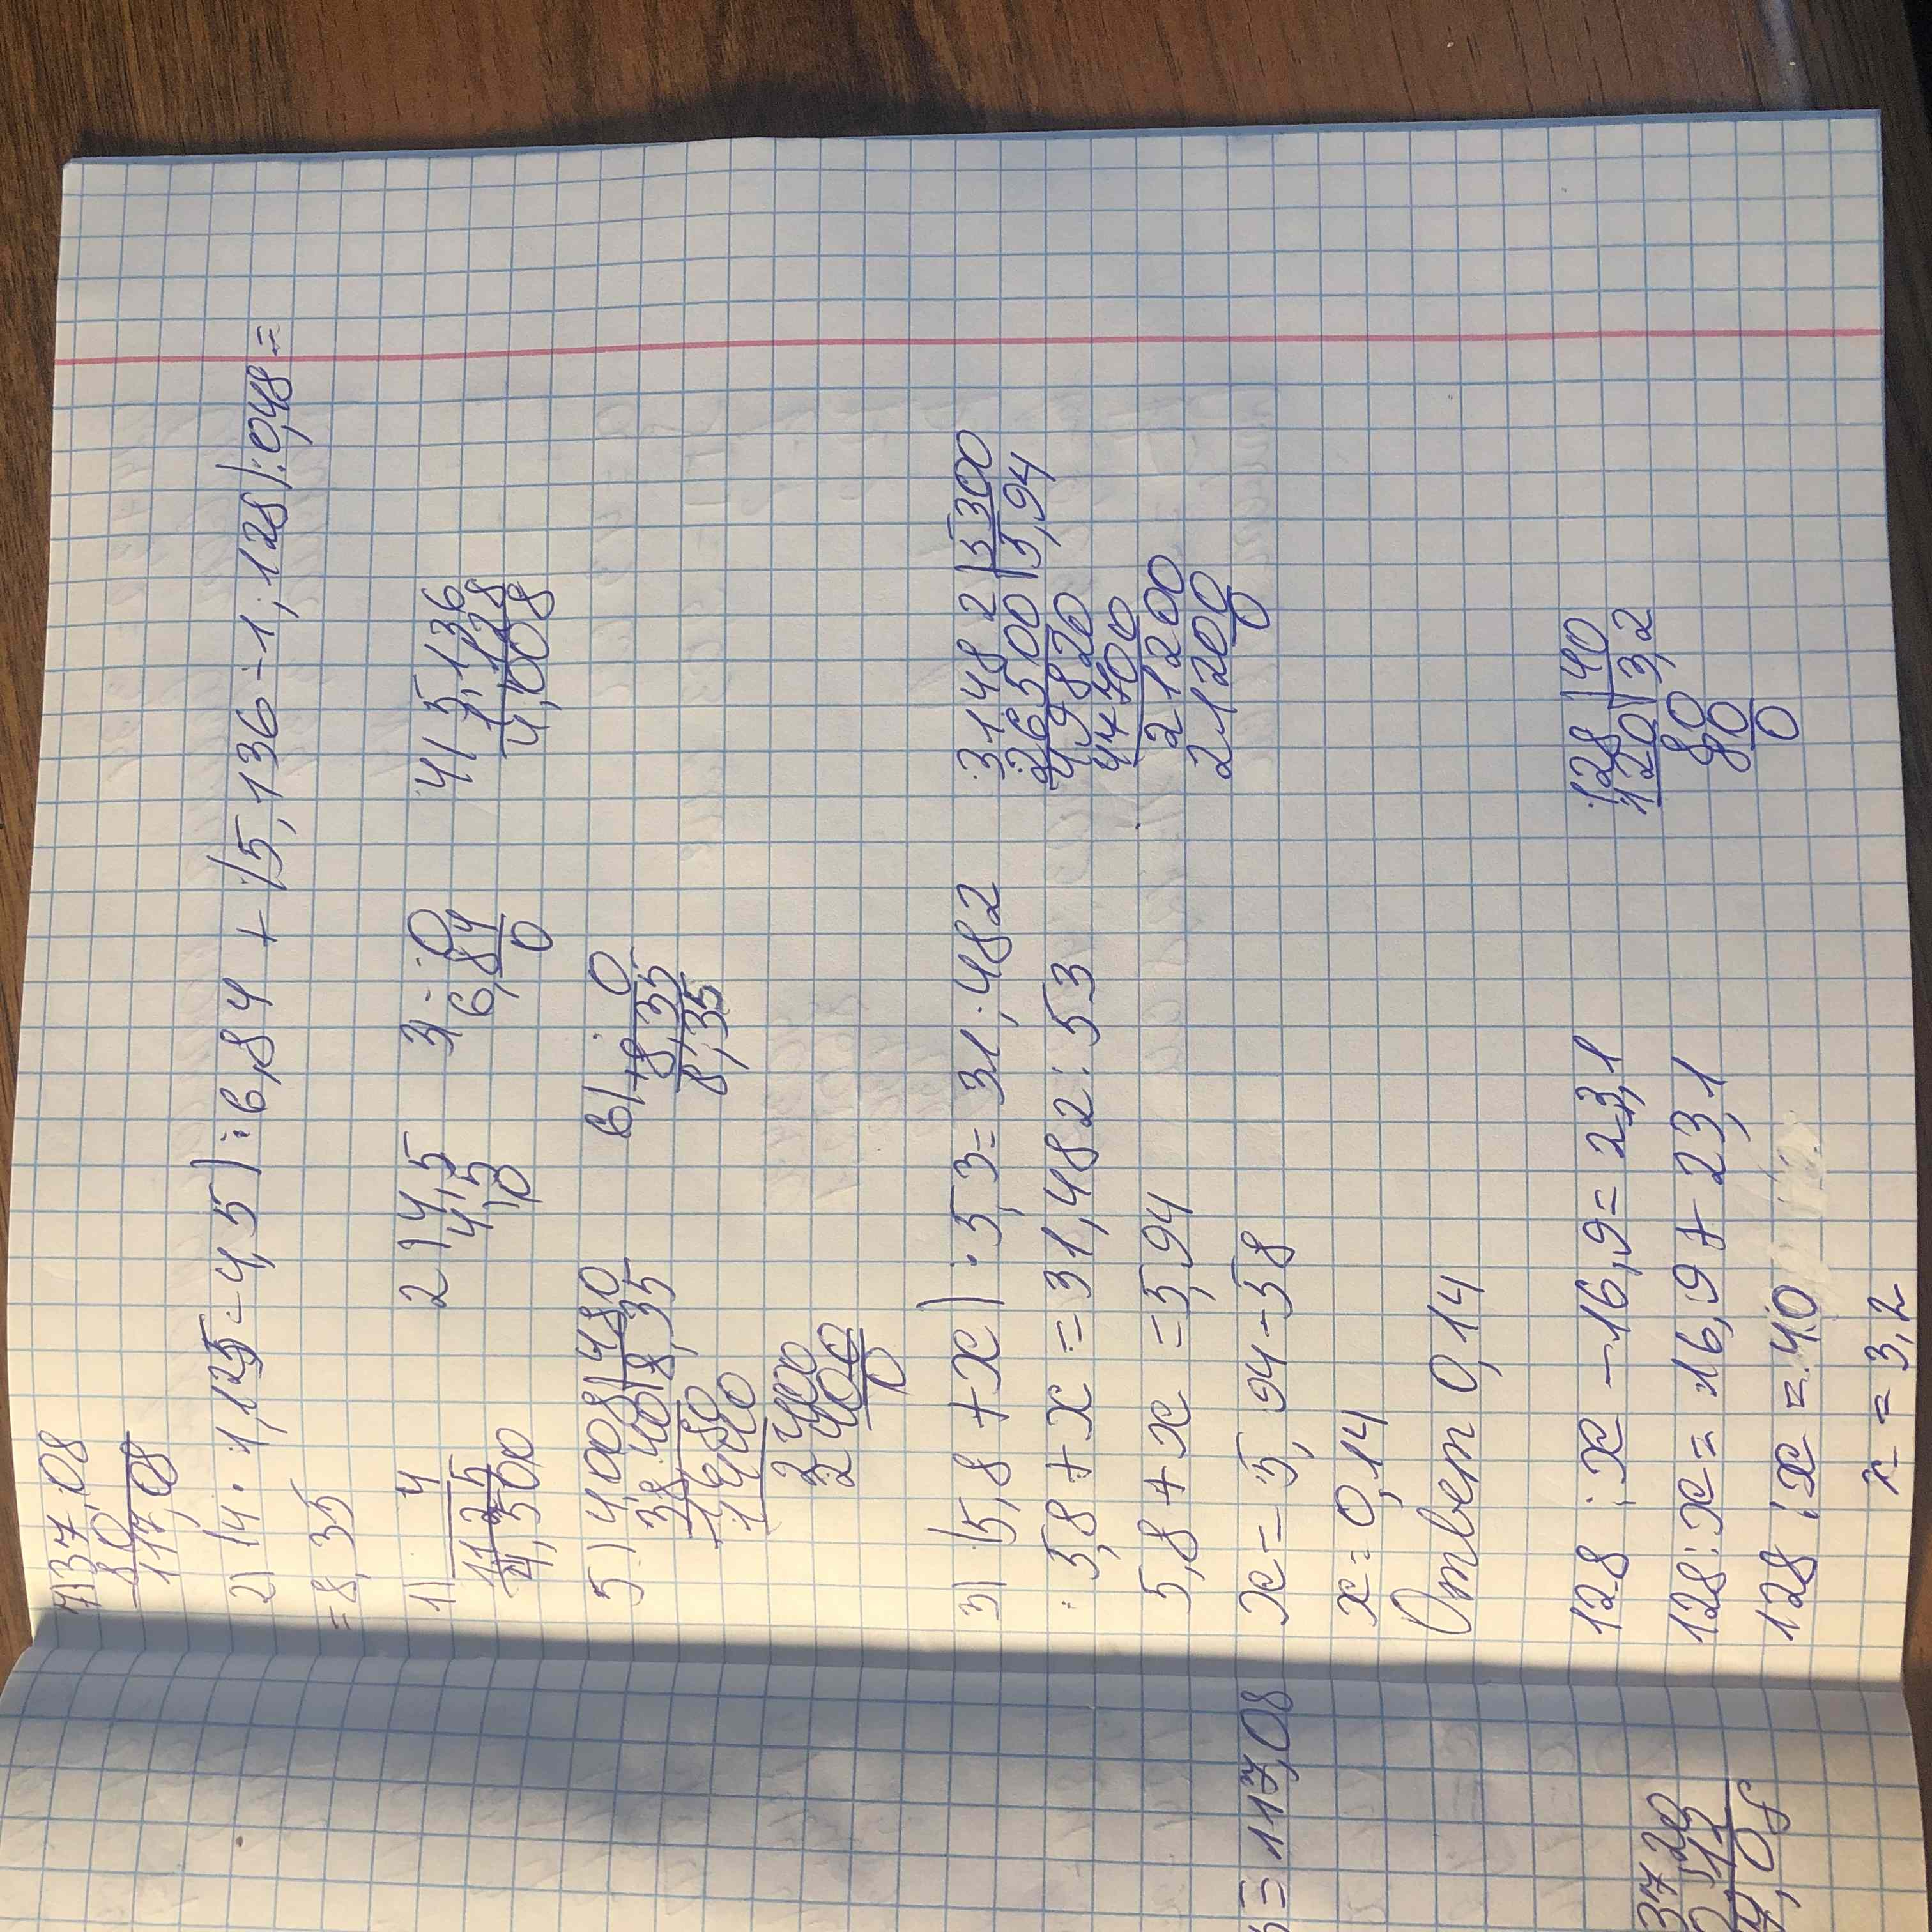 7) 37,08
80
117,08
2) (4 · 1,125 - 4,5) : 6,84 + (5,136 - 1,128) : 0,48 =
= 8,35
1) 4
1125
4,500
2) 4,5
4,5
0
3) 0
6,84
0
4) 5,136
1,128
4,008
5) 4,008 | 480
3840 | 8,35
1680
1440
2400
2400
0
6) 0
+8,35
8,35
3) (5,8 + x) · 5,3 = 31,482
5,8 + x = 31,482 : 53
5,8 + x = 5,94
x = 5,94 - 58
x = 0,14
Ответ 0,14
31482 | 5300
26500 | 5,94
49820
47700
21200
21200
0
128 : x - 16,9 = 23,1
128 : x = 16,9 + 23,1
128 : x = 40
x = 3,2
128 | 40
120 | 3,2
80
80
0
= 117,08